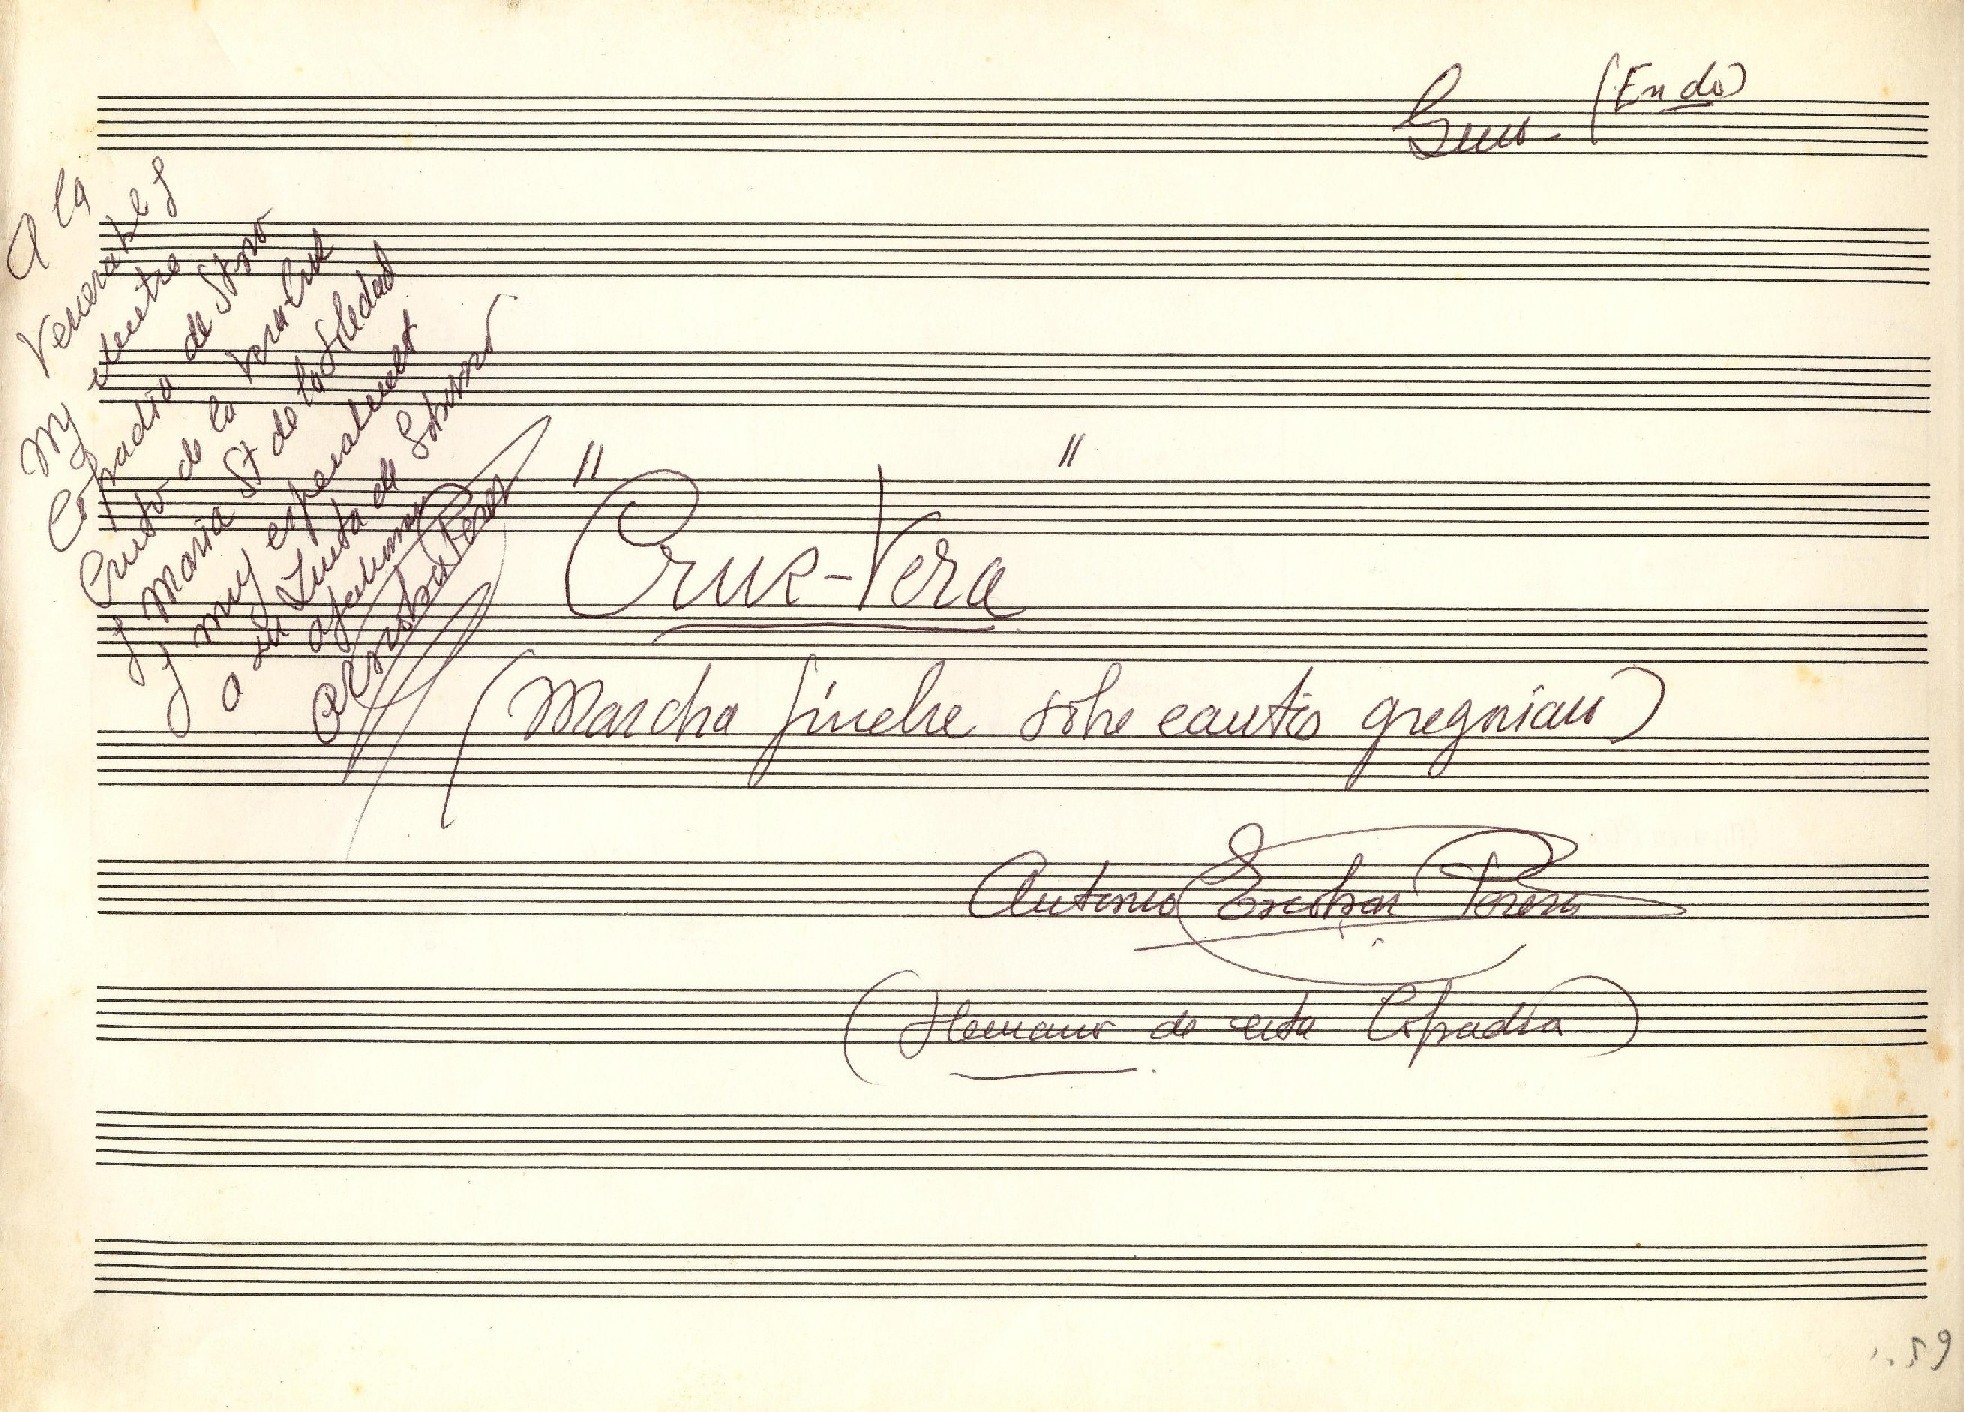 Guion (En do)
A la
Venerable y
muy ilustre
Cofradía de Stmo
Cristo de la Vera-Cruz
y María St de la Soledad
y muy especialmente
a su Junta de Gobierno
A Escobar Perez
"Cruz-Vera"
(Marcha fúnebre sobre cantos gregoriano)
Antonio Escobar Perez
(Hermano de esta Cofradía)
59